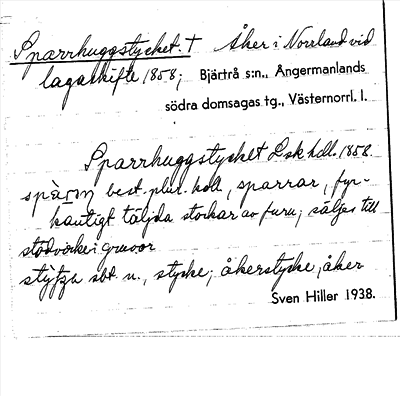 Sparrhuggstycket. † Åker i Norrland vid
lagaskifte 1858; Bjärtrå s:n., Ångermanlands
södra domsagas tg., Västernorrl. l.
Sparrhuggstycket Lsk hdl. 1858.
best. plur. koll., sparrar, fyr-
kantigt täljda stockar av furu; säljes till
stödvirke i gruvor
sbt n., stycke; åkerstycke, åker
Sven Hiller 1938.